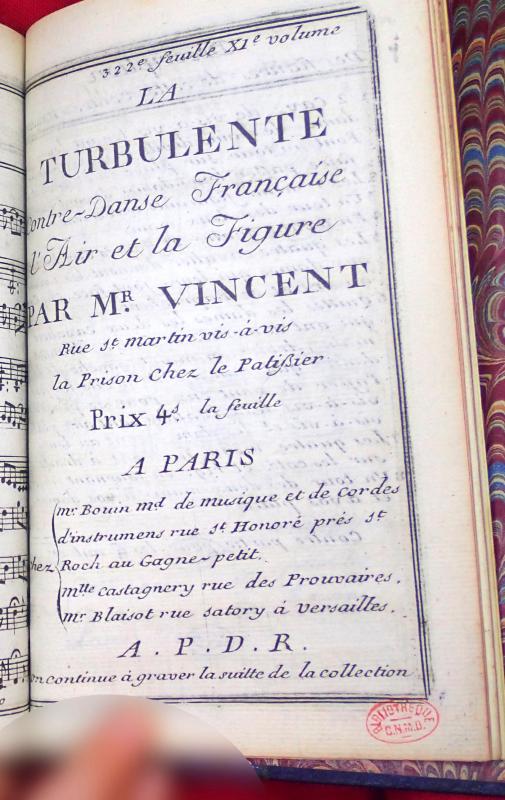 322e feuille XIe volume
LA
TURBULENTE
Contre-Danse Française
l'Air et la Figure
PAR MR. VINCENT
Rue st martin vis-á-vis
la Prison Chez le Patißier
Prix 4s. la feuille
A PARIS
mr. Bouin md. de musique et de cordes
d'instrumens rue st Honoré prés st
chez Roch au Gagne-petit.
mlle castagnery rue des Prouvaires.
mr. Blaisot rue satory á versailles.
A. P. D. R.
on continue á graver la suitte de la collection
BIBLIOTHÈQUE
C.N.M.D.